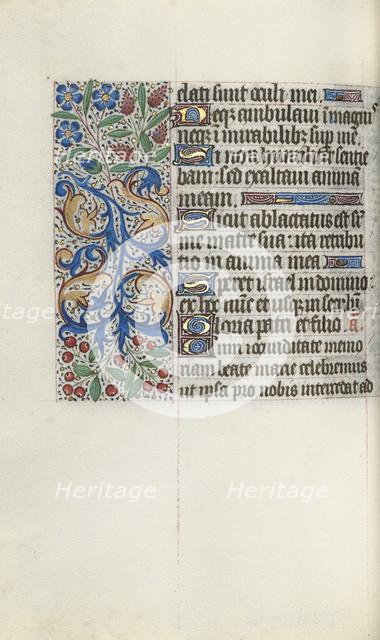 elati sunt oculi mei.
Neq; ambulavi i magnis
neq; i mirabilib; sup me.
Si non sentie
bam: sed exaltavi anima
meam.
Sicut ablactatus est sup
me matre sua: ita retribu
tio in anima mea
Speret isrl in domino:
ex hoc nūc et usq; in
Gloria patri et filio. a.
Cum iocunditate memo
riam beate marie celebremus
ut ipsa pro nobis intercedat ad
Heritage Heritage
Heritage Heritage
Heritage Heritage